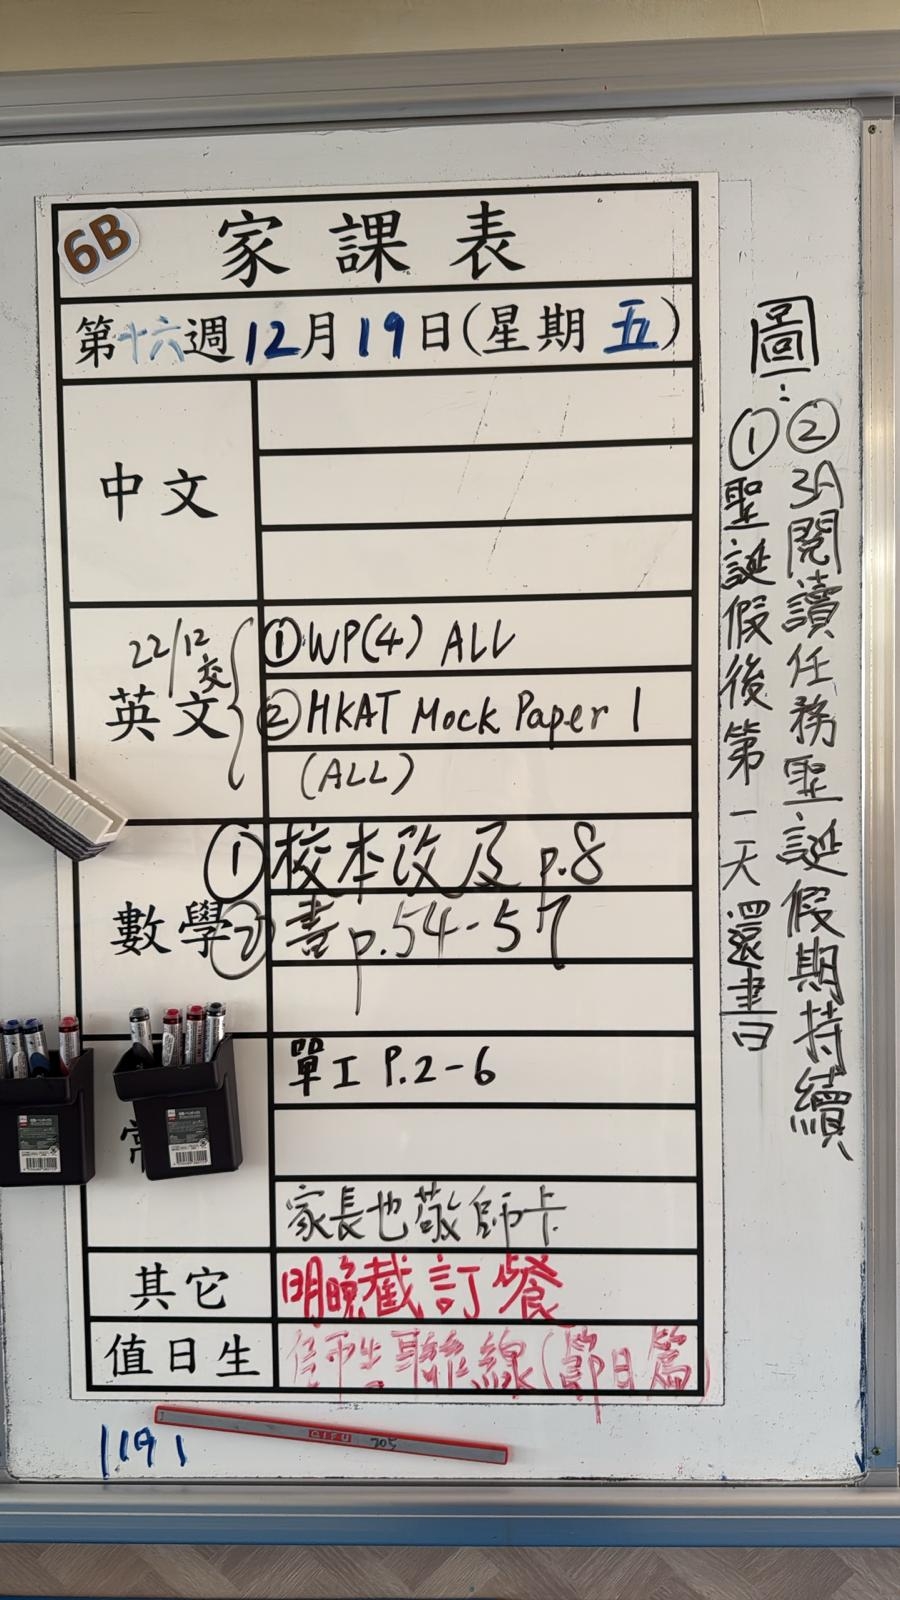 6B
家課表
第十六週12月19日(星期五)
中文
英文
22/12交
①WP(4) ALL
②HKAT Mock Paper 1
(ALL)
數學
①校本改及 p.8
②書p.54-57
常
單工 P.2-6
家長也敬師卡
其它
明晚截訂餐
值日生
師生聯線(節日篇)
圖:
①聖誕假後第一天還書
②3A閱讀任務聖誕假期持續
GIFU 705